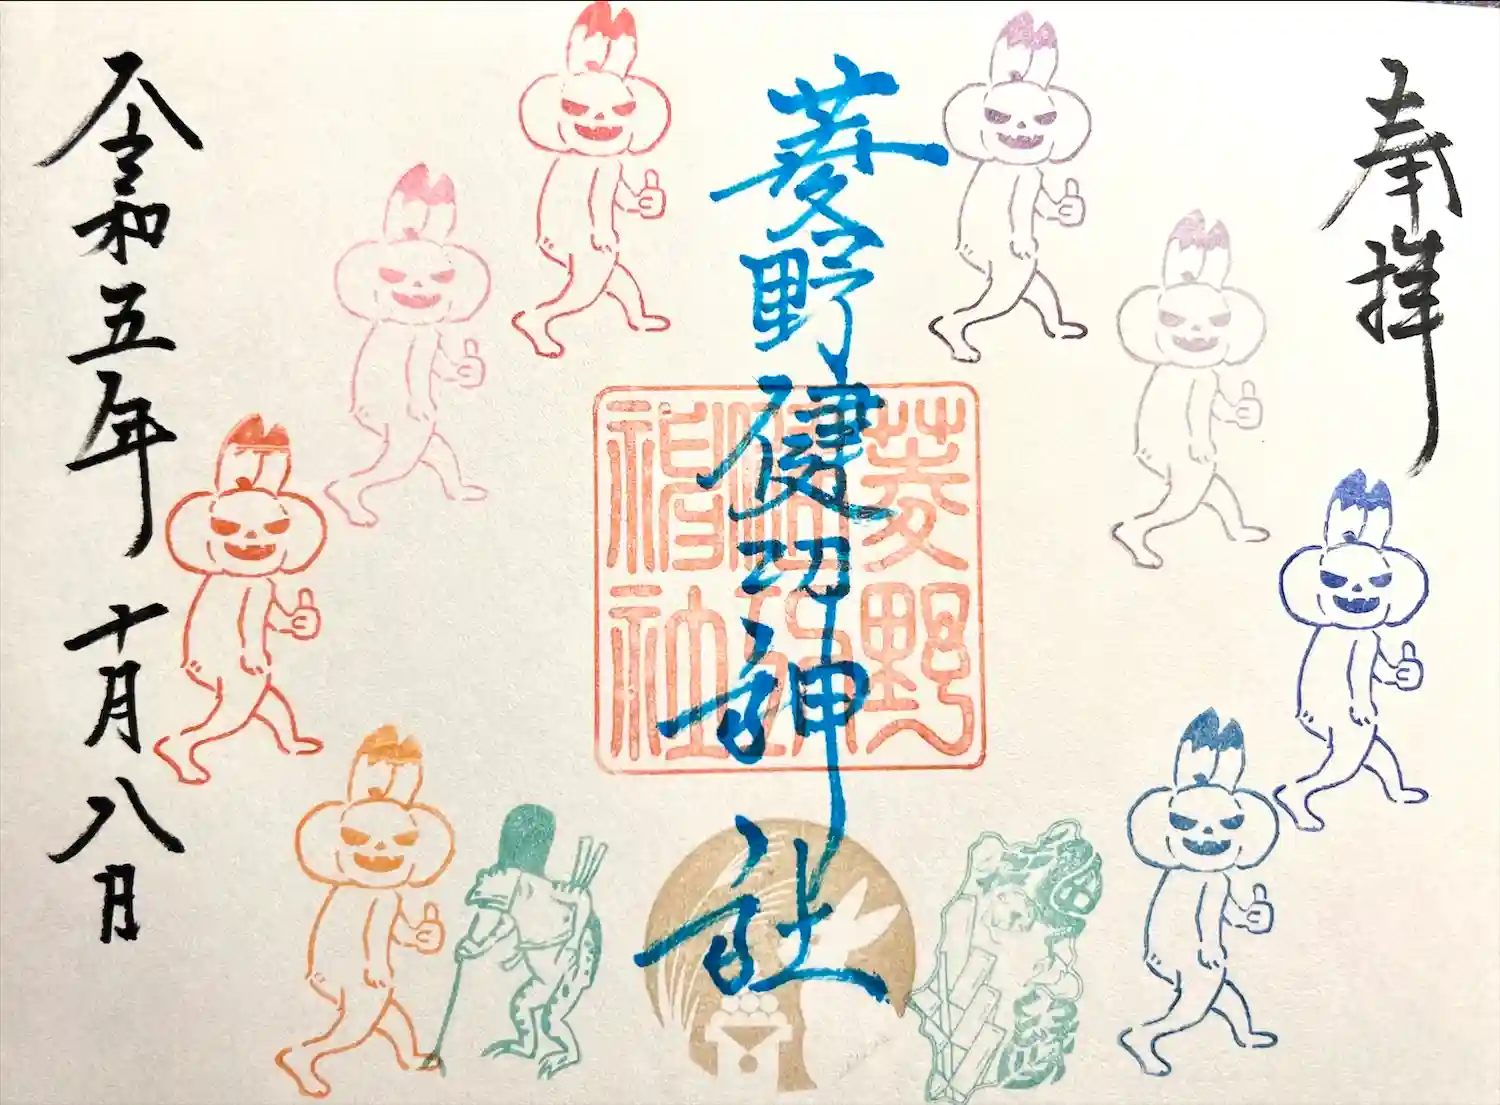 奉拝
菱野健功神社
令和五年十月八日
菱野
健功
神社